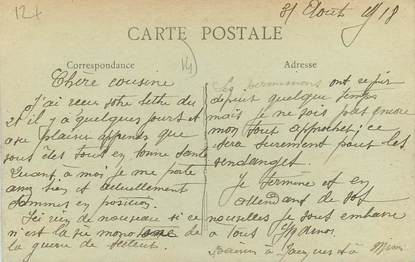 12+
31 Août 1918
CARTE POSTALE
Correspondance
Adresse
14
Chère cousine
J'ai reçu votre lettre du
21 il y a quelques jours et
avec plaisir apprends que
vous êtes tous en bonne santé
Quant à moi je me porte
assez bien et actuellement
sommes en position.
Ici rien de nouveau si ce
n'est la vie monotone de
la guerre de secteur.
Les permissions ont repris
depuis quelque temps
mais je ne suis pas encore
mon tour approche; ce
sera surement pour les
vendanges.
Je termine et en
attendant de vos
nouvelles je vous embrasse
à tous
à Jacques et à Mimi